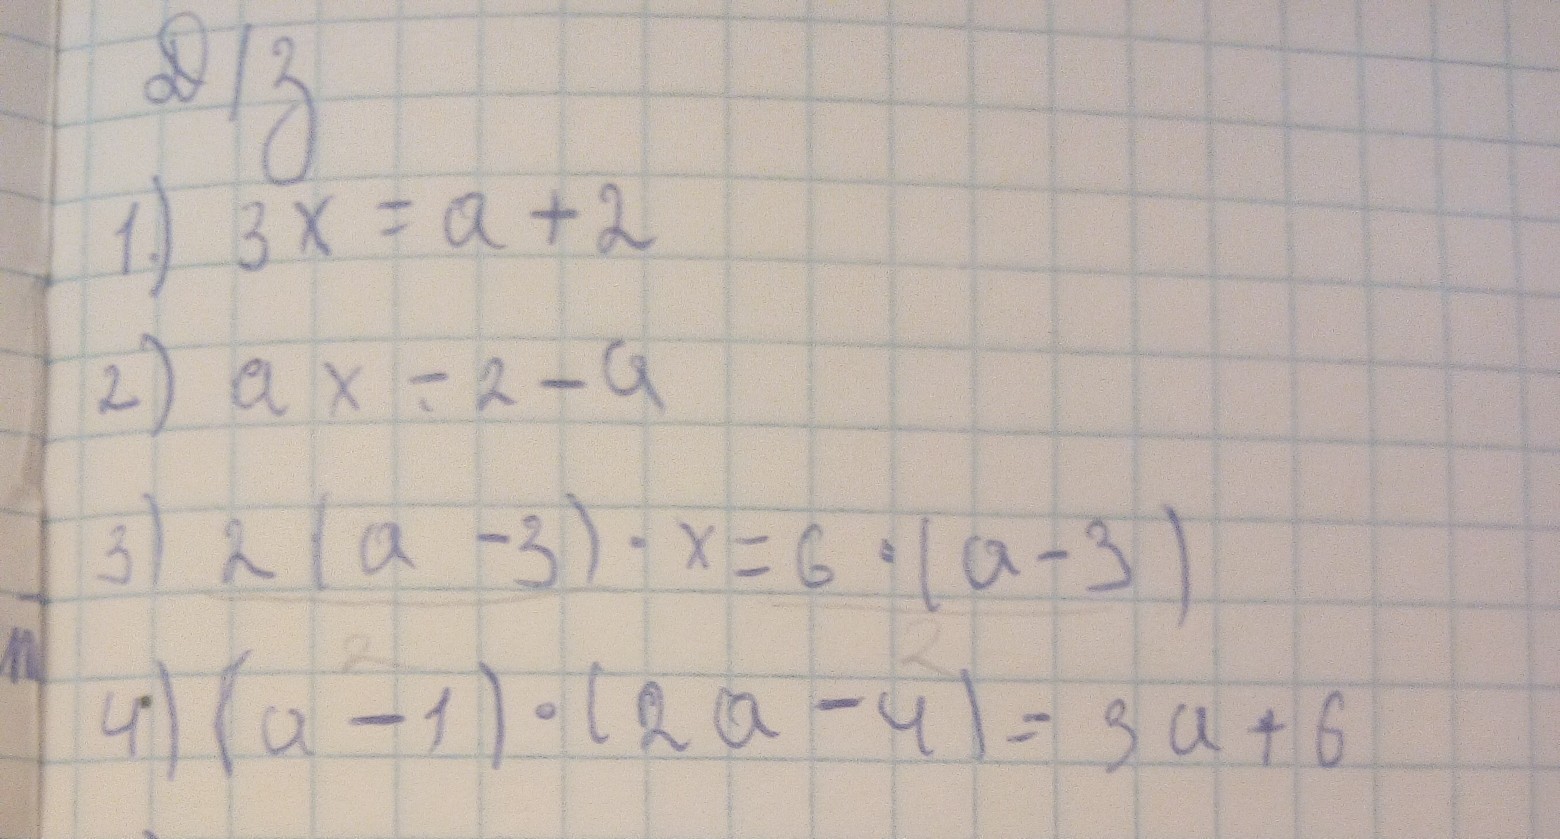 Д/з
1.) 3x = a + 2
2) ax = 2 - a
3) 2(a - 3) · x = 6 · (a - 3)
2 2
4) (a - 1) · (2a - 4) = 3a + 6